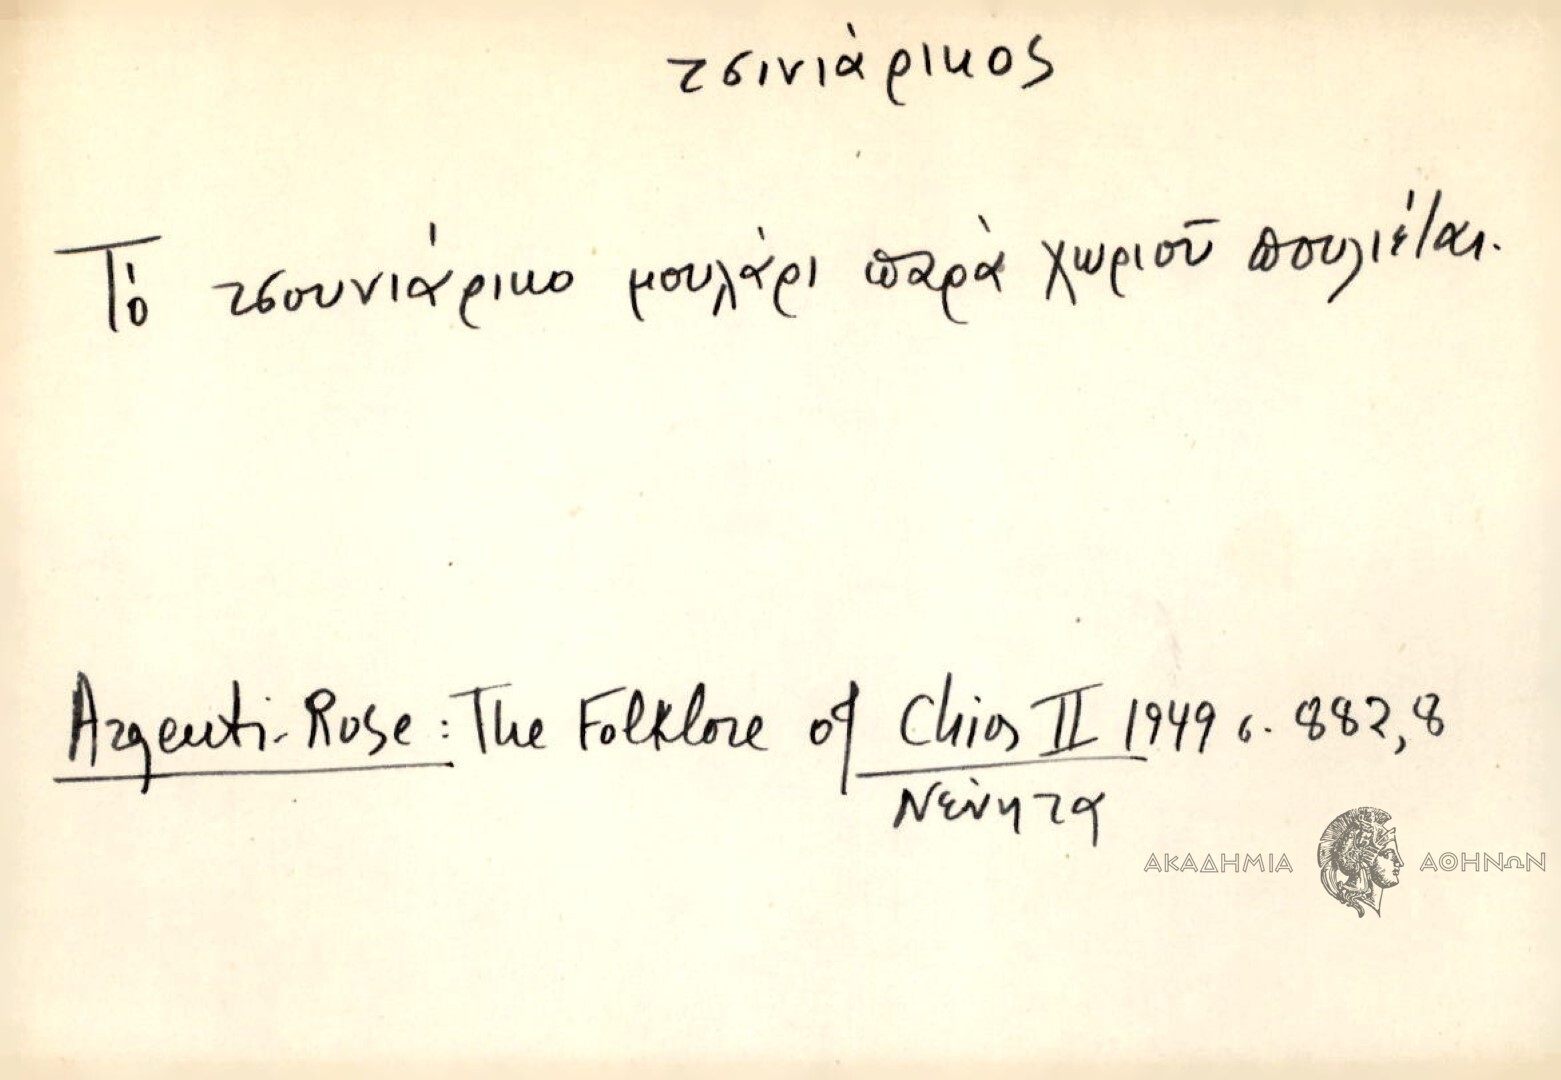 τσινιάρικος
Τὸ τσουνιάρικο μουλάρι παρὰ χωριοῦ πουλιέται.
Argenti-Rose: The Folklore of Chios II 1949 σ. 882,8
Νένητα
ΑΚΑΔΗΜΙΑ ΑΘΗΝΩΝ